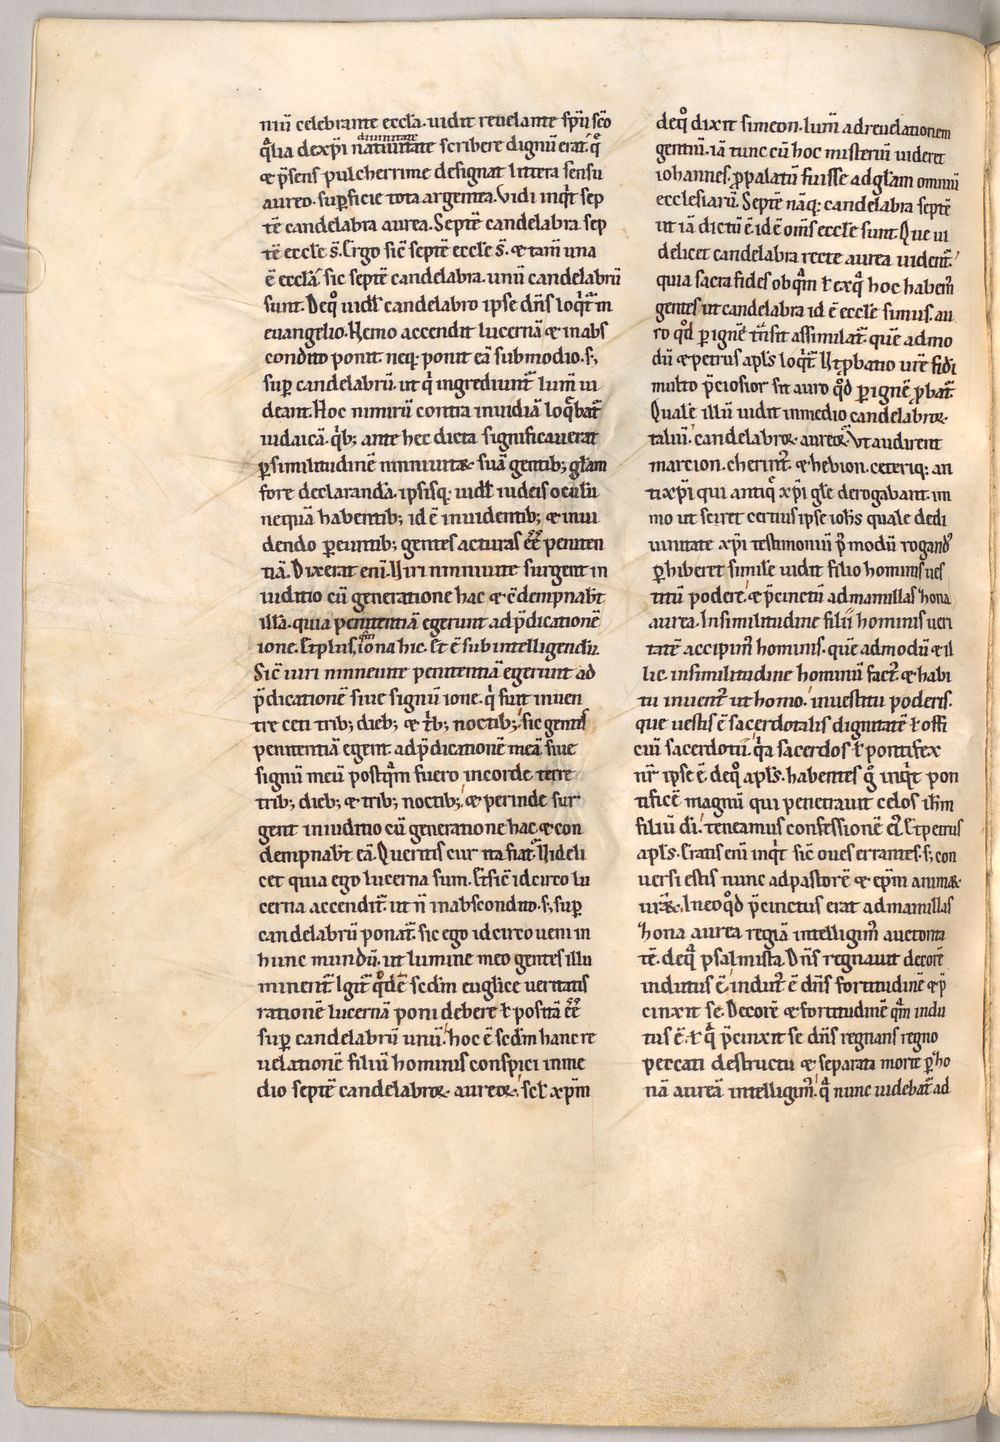 niũ celebrante eccła. uidit reuelante sp̃u sc̃o
q̃lia de xp̃i natiuitate scribere dignũ erat. q̃
diuinitate
& p̃sens pulcherrime designat littera sensu
aureo. sup̃ficie tota argentea. Vidi inq̇t sep
tẽ candelabra aurea. Septẽ candelabra sep
tẽ eccłe s̃. Ergo sic̃ septẽ eccłe s̃. & tam̃ una
ẽ eccła. sic septẽ candelabra. unũ candelabrũ
sunt. De qͦ uidł candelabro ipse dñs loq̇t᷑ in
euangelio. Nemo accendit lucernã & in abs
condito ponit. neq; ponit eã sub modio. s;
sup̃ candelabrũ. ut q̇ ingrediunt᷑ lum̃ ui
deant. Hoc nimirũ contra inuidiã loq̃bat᷑
iudaicã. q̇b; ante hec dicta significauerat
ꝑ similitudinẽ niniuitaꝝ suã gentib; głam
fore declarandã. ipsisq; uidł iudeis oculũ
nequã habentib; id ẽ inuidentib; & inui
dendo ꝑeuntib; gentes acturas ẽẽ peniten
tiã. Dixerat eni᷑. Viri niniuite surgent in
iuditio cũ generatione hac & c̃dempnab̃t
illã. quia penitentiã egerunt ad p̃dicationẽ
ione. Et plus qm̃ iona hic. Et ẽ subintelligendũ.
Sic̃ uiri nineuite penitentiã egerunt ad
p̃dicationẽ siue signũ ione. q̇ fuit in uen
tre ceti trib; dieb; & t̃b; noctib; sic gentes
penitentiã egent. ad p̃dicationẽ meã siue
signũ meũ postq̃m fuero in corde terre
trib; dieb; & trib; noctib; & perinde sur
gent in iuditio cũ generatione hac & con
dempnab̃t eã. Queritis cur ita fiat. Videli
cet quia ego lucerna sum. Et sic̃ idcirco lu
cerna accendit᷑. ut ñ in abscondito. s; sup̃
candelabrũ ponat᷑. sic ego idcirco ueni in
hunc mundũ. ut lumine meo gentes illu
minent᷑. Igit᷑ q̇dẽ sc̃dm euglice ueritatis
rationẽ lucernã poni debere ł positã ẽẽ
sup̃ candelabrũ unũ. hoc ẽ sc̃dm hanc re
uelationẽ filiũ hominis conspici in me
dio septẽ candelabroꝝ aureoꝝ. scł xp̃m
de qͦ dixit simeon. lum̃ ad reuelationem
gentiũ. iã tunc cũ hoc misteriũ uideret
iohannes. ꝓpalatũ fuisse ad głam omniũ
ecclesiarũ. Septẽ nãq; candelabra septẽ
ut iã dictũ ẽ id ẽ om̃s eccłe sunt. Que ui
delicet candelabra recte aurea uident᷑.
quia sacra fides ob q̃m ł ex q̃ hoc habem᷒
gentes ut candelabra id ẽ eccłe simus. au
ro qͦd ꝑ ignẽ t̃nsit assimilat᷑. quẽ admo
dũ & petrus apłs loq̇t᷑. Ut ꝓbatio ur̃e fidei
multo p̃ciosior sit auro qͦd ꝑ ignẽ ꝓbat᷑.
Qualẽ illũ uidit in medio candelabroꝝ
taliũ. candelabroꝝ aureoꝝ. Vt audirent
marcion. cherint᷒. & hebion. ceteriq; an
tixp̃i qui antiq̃ xp̃i głe derogabant. im
mo ut sciret certius ipse ioh̃s quale dedi
uinitate xp̃i testimoniũ p᷒ modũ rogand᷒
ꝑhiberet. similẽ uidit filio hominis ues
titũ podere. & p̃cinctũ ad mamillas zona
aurea. In similitudine filii hominis ueri
tatẽ accipim᷒ hominis. quẽ admodũ & il
lic. in similitudine hominũ fact᷒ & habi
tu inuent᷒ ut homo. in uestitu poderis.
que uestis ẽ sacerdotalis dignitatẽ ł offi
ciũ sacerdotii. q̇a sacerdos ł pontifex
nr̃ ipse ẽ. de qͦ apłs. habentes g̊ inq̇t pon
tificẽ magnũ qui penetrauit celos ih̃m
filiũ di᷑. teneamus confessionẽ ei᷒. Et petrus
apłs. Eratis eni᷑ inq̇t sic̃ oues errantes. s; con
uersi estis nunc ad pastorẽ & ep̃m animaꝝ
ur̃aꝝ. In eo qͦd p̃cinctus erat ad mamillas
zona aurea regiã intelligim᷒ auctorita
tẽ. de q̃ psalmista. Dñs regnauit decorẽ
indutus ẽ. indut᷒ ẽ dñs fortitudinẽ & p̃
cinxit se. Decorẽ & fortitudinẽ q̃m indu
tus ẽ. ł q̃ p̃cinxit se dñs regnans regno
peccati destructu & separata morte ꝑ zo
nã aureã intelligim᷒. q̃ nunc uidebat᷑ ad